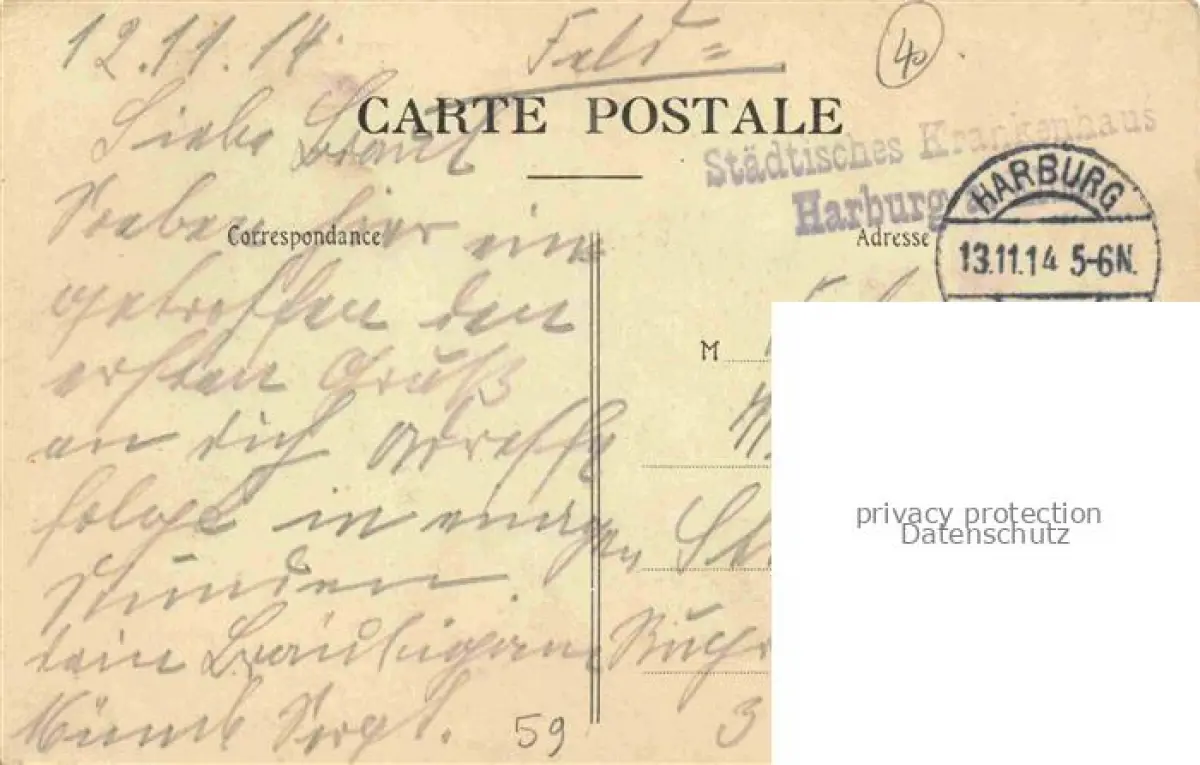 12.11.14.
Feld=
40
CARTE POSTALE
Städtisches Krankenhaus
Harburg
HARBURG
13.11.14 5-6N.
Correspondance
Adresse
M
Liebe Braut
Soeben hier ein
getroffen den
ersten Gruß
an dich Adresse
folgt in einigen
Stunden.
dein Bräutigam
59
3
privacy protection
Datenschutz